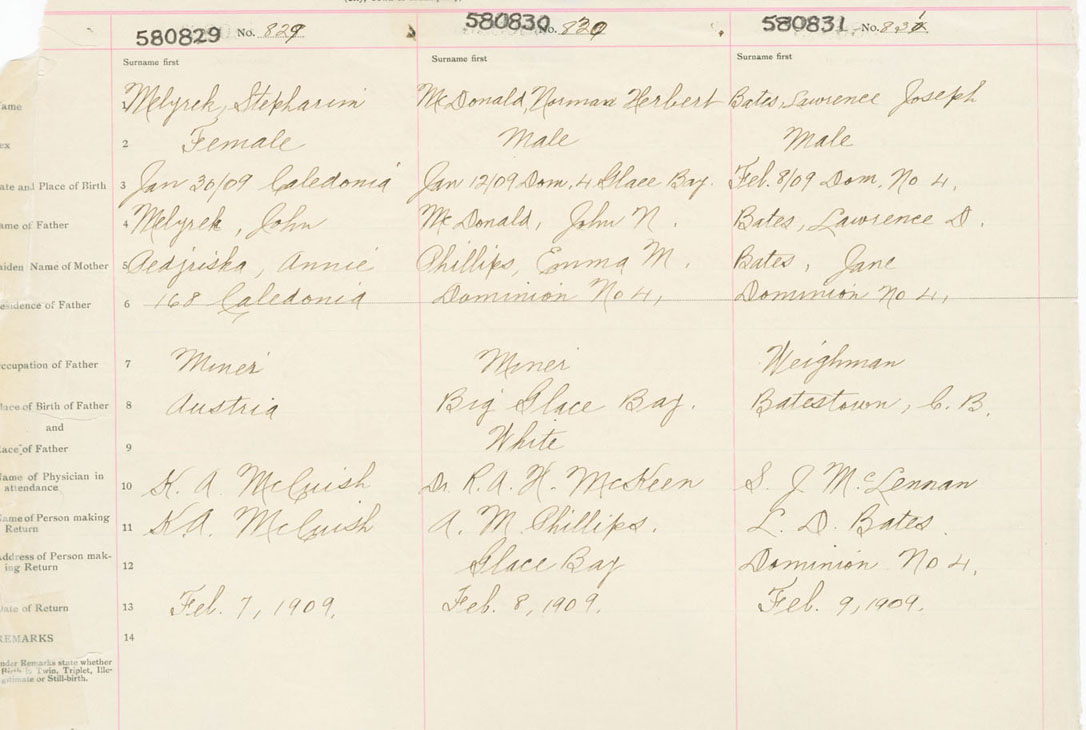 580829 No. 829 580830 No. 830 580831 No. 831
Surname first Surname first Surname first
ame 1 Melyrek, Stepharim McDonald, Norman Herbert Bates, Lawrence Joseph
ex 2 Female Male Male
ate and Place of Birth 3 Jan 30/09 Caledonia Jan 12/09 Dom. 4 Glace Bay. Feb. 8/09 Dom. No 4.
ame of Father 4 Melyrek, John McDonald, John N. Bates, Lawrence D.
aiden Name of Mother 5 Annie Phillips, Emma M. Bates, Jane
esidence of Father 6 168 Caledonia Dominion No 4, Dominion No 4,
ccupation of Father 7 Miner Miner Weighman
lace of Birth of Father 8 Austria Big Glace Bay. Batestown, C. B.
and
ace of Father 9 White
Name of Physician in
attendance 10 K. A. McCuish Dr. R. A. H. McKeen S. J. McLennan
Name of Person making
Return 11 K. A. McCuish A. M. Phillips. L. D. Bates
Address of Person mak-
ing Return 12 Glace Bay Dominion No 4.
Date of Return 13 Feb. 7, 1909. Feb. 8, 1909. Feb. 9, 1909.
REMARKS 14
nder Remarks state whether
Birth is Twin, Triplet, Ille-
gitimate or Still-birth.